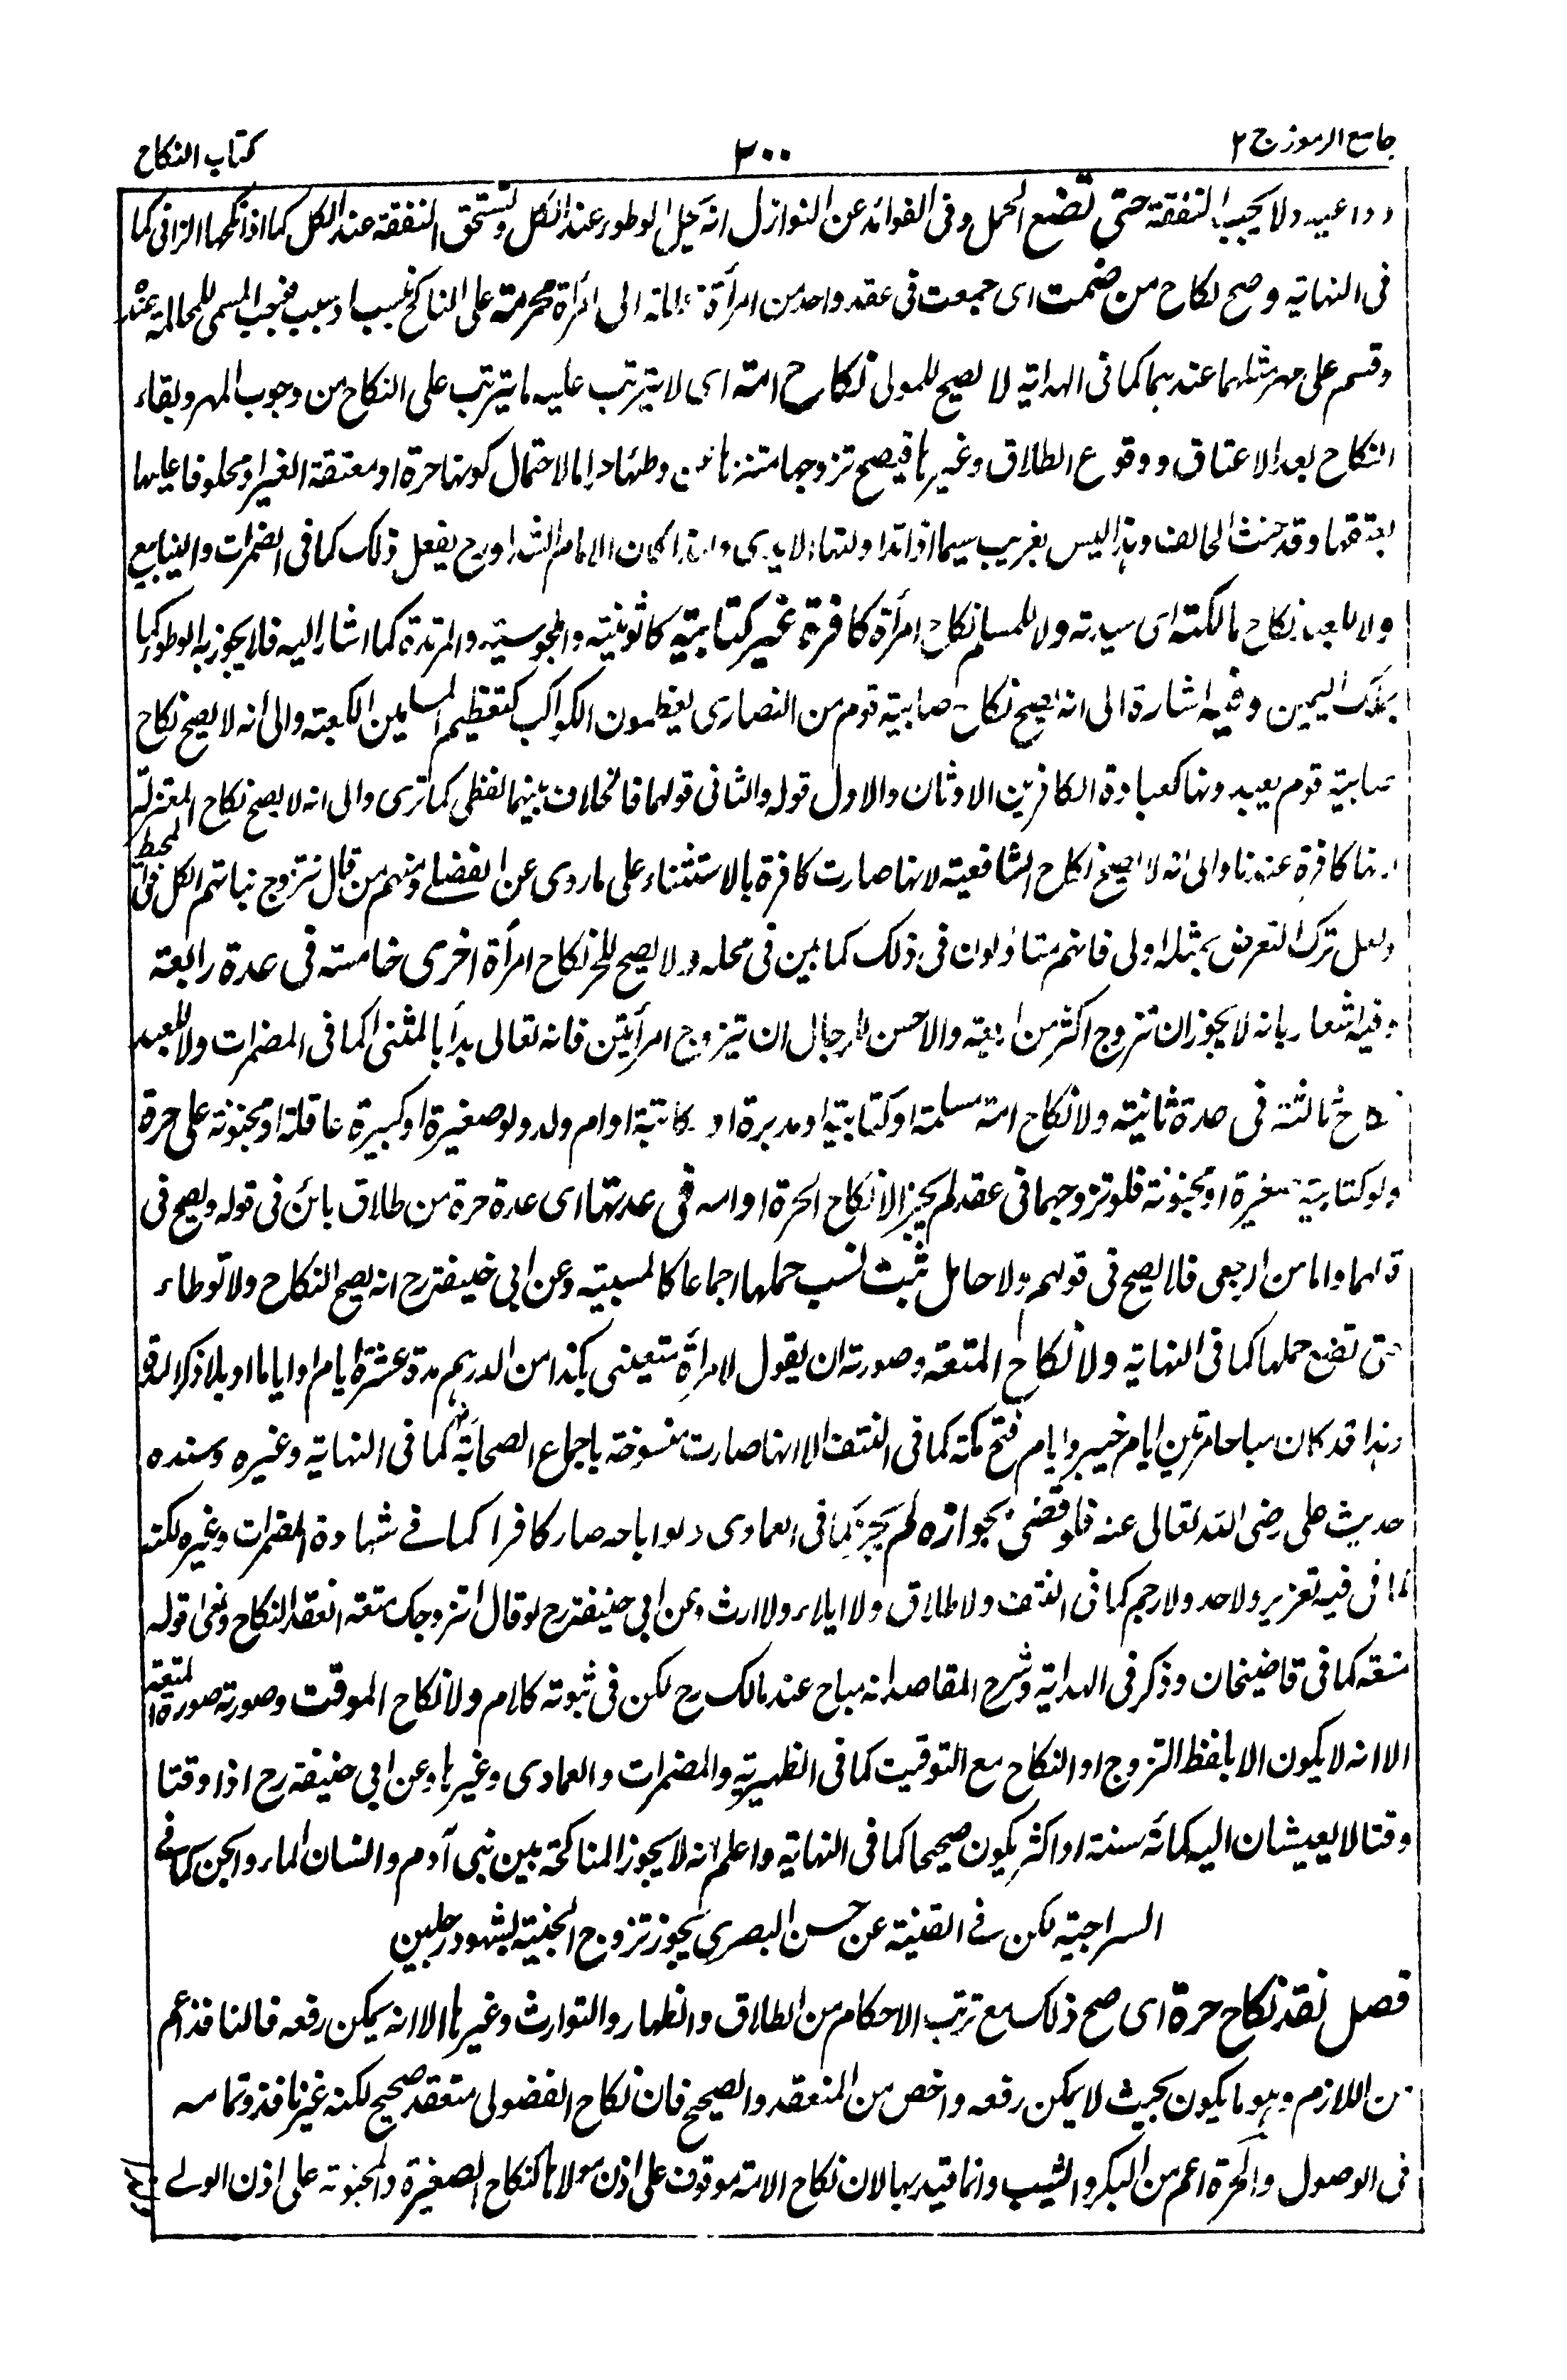 جامع الرموز ج ٢
٣٠٠
كتاب النكاح
ودواعيه ولا يجب النفقة حتى تضع الحمل وفى الفوائد عن النوازل انه يحل الوطؤ عند الكل وتستحق النفقة عند الكل كما اذا نكحها الزانى كما
فى النهاية وصح نكاح من ضمت اى جمعت فى عقد واحد من امرأة الى امرأة محرمة على الناكح بنسب او سبب فيجب المسمى للمحللة عنده
وقسم على مهر مثلهما عندهما كما فى الهداية لا يصح للمولى نكاح امته اى لا يترتب عليه ما يترتب على النكاح من وجوب المهر وبقاء
النكاح بعد الاعتاق ووقوع الطلاق وغيرها فيصح تزوجها متنزها عن وطئها حراما لاحتمال كونها حرة او معتقة الغير او محلوفا عليها
بعتقها وقد حنث الحالف وهذا ليس بغريب سيما اذا تداولتها الايدى ولهذا كان الامام الشداد رح يفعل ذلك كما فى المضمرات والينابيع
ولا للعبد نكاح مالكته اى سيدته ولا للمسلم نكاح امرأة كافرة غير كتابية كالوثنية والمجوسية والمرتدة كما اشار اليه فلا يجوز به الوطؤ كما
بملك اليمين وفيه اشارة الى انه يصح نكاح صابية قوم من النصارى يعظمون الكواكب كتعظيم المسلمين الكعبة والى انه لا يصح نكاح
صابية قوم يعبدونها كعبادة الكافرين الاوثان والاول قوله والثانى قولهما فالخلاف بينهما لفظى كما ترى والى انه لا يصح نكاح المعتزلة
لانها كافرة عندنا والى انه لا يصح نكاح الشافعية لانها صارت كافرة بالاستثناء على ما روى عن الفضلى ومنهم من قال نتزوج بناتهم الكل فى المحيط
ولعل ترك التعرض بمثله اولى فانهم متأولون فى ذلك كما بين فى محله ولا يصح للحر نكاح امرأة اخرى خامسة فى عدة رابعة
وفيه اشعار بانه لا يجوز ان تتزوج اكثر من اربعة والاحسن للرجال ان يتزوج امرأتين فانه تعالى بدأ بالمثنى كما فى المضمرات ولا للعبد
نكاح ثالثة فى عدة ثانية ولا نكاح امة مسلمة او كتابية او مدبرة او مكاتبة او ام ولد ولو صغيرة او كبيرة عاقلة او مجنونة على حرة
ولو كتابية صغيرة او مجنونة فلو تزوجهما فى عقد لم يجز الا نكاح الحرة او امة فى عدتها اى عدة حرة من طلاق بائن فى قوله ويصح فى
قولهما واما من الرجعى فلا يصح فى قولهم ولا حامل ثبت نسب حملها اجماعا كالمسبية وعن ابى حنيفة رح انه يصح النكاح ولا توطاء
حتى تضع حملها كما فى النهاية ولا نكاح المتعة وصورته ان يقول لامرأة متعينى بكذا من الدرهم مدة عشرة ايام او اياما او بلا ذكر المدة
وهذا قد كان مباحا مرتين ايام خيبر وايام فتح مكة كما فى النتف الا انها صارت منسوخة باجماع الصحابة رض كما فى النهاية وغيره وسنده
حديث على رضى الله تعالى عنه فلو قضى بجوازه لم يجز كما فى العمادى ولو اباحه صار كافرا كما فى شهادة المضمرات وغيره لكنه
فيه تعزير ولا حد ولا رجم كما فى النتف ولا طلاق ولا ايلاء ولا ارث وعن ابى حنيفة رح لو قال اتزوجك متعة انعقد النكاح ولغى قوله
متعة كما فى قاضيخان وذكر فى الهداية وشرح المقاصد انه مباح عند مالك رح لكن فى ثبوته كلام ولا نكاح الموقت وصورته صورة المتعة
الا انه لا يكون الا بلفظ التزوج او النكاح مع التوقيت كما فى الظهيرية والمضمرات والعمادى وغيرها وعن ابى حنيفة رح اذا وقتا
وقتا لا يعيشان اليه كمائة سنة او اكثر يكون صحيحا كما فى النهاية واعلم انه لا يجوز المناكحة بين بنى آدم وانسان الماء والجن كما فى
السراجية لكن فى القنية عن حسن البصرى يجوز تزوج الجنية بشهود رجلين
فصل نفذ نكاح حرة اى صح ذلك مع ترتب الاحكام من الطلاق والظهار والتوارث وغيرها الا انه يمكن رفعه فالنافذ اعم
من اللازم وهو ما يكون بحيث لا يمكن رفعه واخص من المنعقد والصحيح فان نكاح الفضولى منعقد صحيح لكنه غير نافذ وتمامه
فى الوصول والحرة اعم من البكر والثيب وانما قيد بها لان نكاح الامة موقوف على اذن مولاها كنكاح الصغيرة والمجنونة على اذن الولى